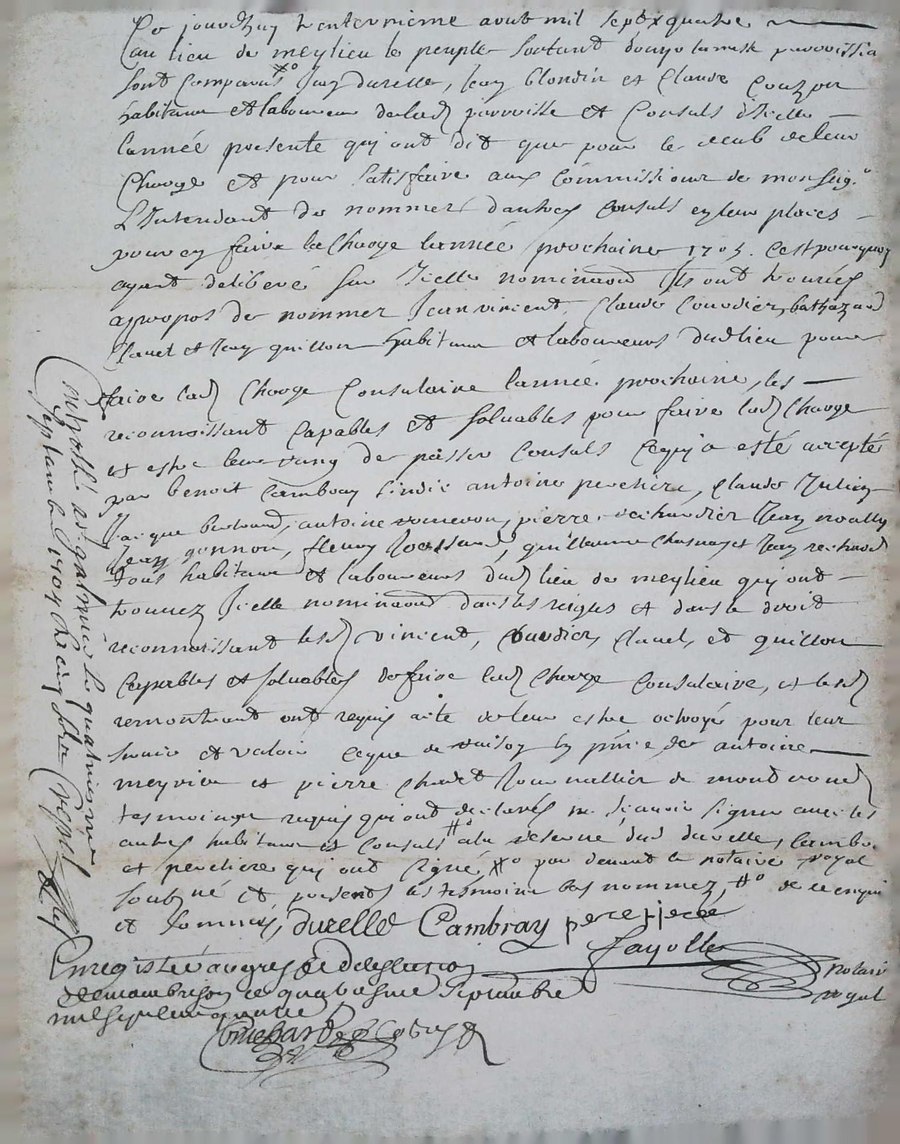 Ce jourdhuy trente uniesme aoust mil sept x quatre
au lieu de meylieu le peuple sortant de la messe parroissia
sont comparus #° Jean durelle, Jean blondin et Claude Couzon
habitans et laboureurs de lad parroisse et Consuls d'Icelle
lannée presente qui ont dit que pour le deub de leur
Charge et pour satisfaire aux Commissions de monseig.r
L'Intendant de nommer dautres Consuls en leur places
pour en faire la Charge lannée prochaine 1705. Cest pourquoy
ayant deliberé sur Icelle nomination Ils ont trouvés
apropos de nommer Jean vincent, Claude Couvdier, bathazard
Clavel et Jean guillon habitans et laboureurs dud lieu pour
faire lad Charge Consulaire lannée prochaine, les
reconnoissant Capables et soluables pour faire lad Charge
et estre leur rang de passer Consuls Ce qui a esté accepté
par benoit Cambray sindic antoine perchere, Claude Julien
Jacque bertrand, antoine pierre Jean
Jean gonnon, fleury guillaume et Jean
Tous habitans et laboureurs dud lieu de meylieu qui ont
trouvez Icelle nomination dans les reigles et dans le droit
reconnoissant lesd vincent, Couvdier, Clavel et guillon
Capables et soluables de faire lad Charge Consulaire, et lesd
remontrant ont requis acte de leur estre octroyé pour leur
servir et valoir Ceque de raison En pnce de antoine
meyvier et pierre Journallier de
tesmoings requis qui ont declarés ne scavoir signer avec les
autres habitans et Consuls #° a la reserve dud durelle, Cambra
et perchere qui ont signé, #° par devant le notaire royal
soubz né et presents les tesmoins bas nommez, #° de ce enquis
et sommés, durelle Cambray perchere
fayolle
notaire
royal
Enregistré au greffe de leslection
de montbrison ce quatriesme septembre
mil sept cent quatre
Controllé a st galmier le quatriesme
septembre 1704 Reçu